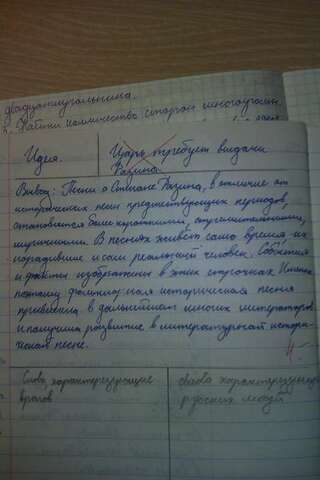 двадцатиугольника.
Найти количество сторон многоугольн.
Идея. Царь требует выдачи
Разина.
Вывод: Песни о Степане Разине, в отличие от
исторических песен предшествующих периодов,
становятся более короткими,
лиричными. В песнях живёт само время, их
породившее и сам реальный человек. События
и факты изображены в этих строчках. Именно
поэтому фольклорная историческая песня
привлекла в дальнейшем многих литераторов
и получила развитие в литературной истори-
ческой песне.
Слова, характеризующие
врагов
слова характеризующие
русских людей